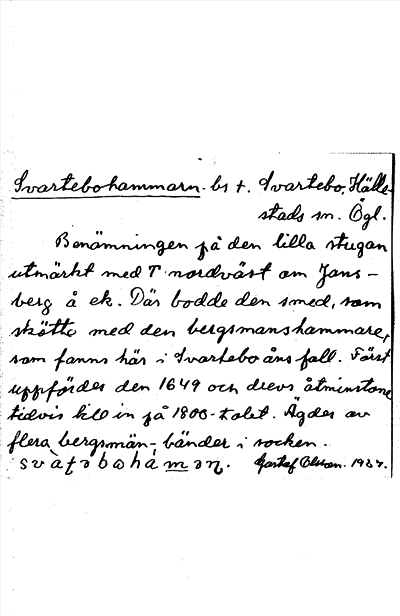 Svartebohammarn. bs t. Svartebo, Hälle-
stads sn. Ögl.
Benämningen på den lilla stugan
utmärkt med T nordväst om Jans-
berg å ek. Där bodde den smed, som
skötte med den bergsmanshammare,
som fanns här i Svartebo åns fall. Först
uppfördes den 1649 och drevs åtminstone
tidvis till in på 1800-talet. Ägdes av
flera bergsmän-bönder i socken.
Gustaf Olsson. 1937.